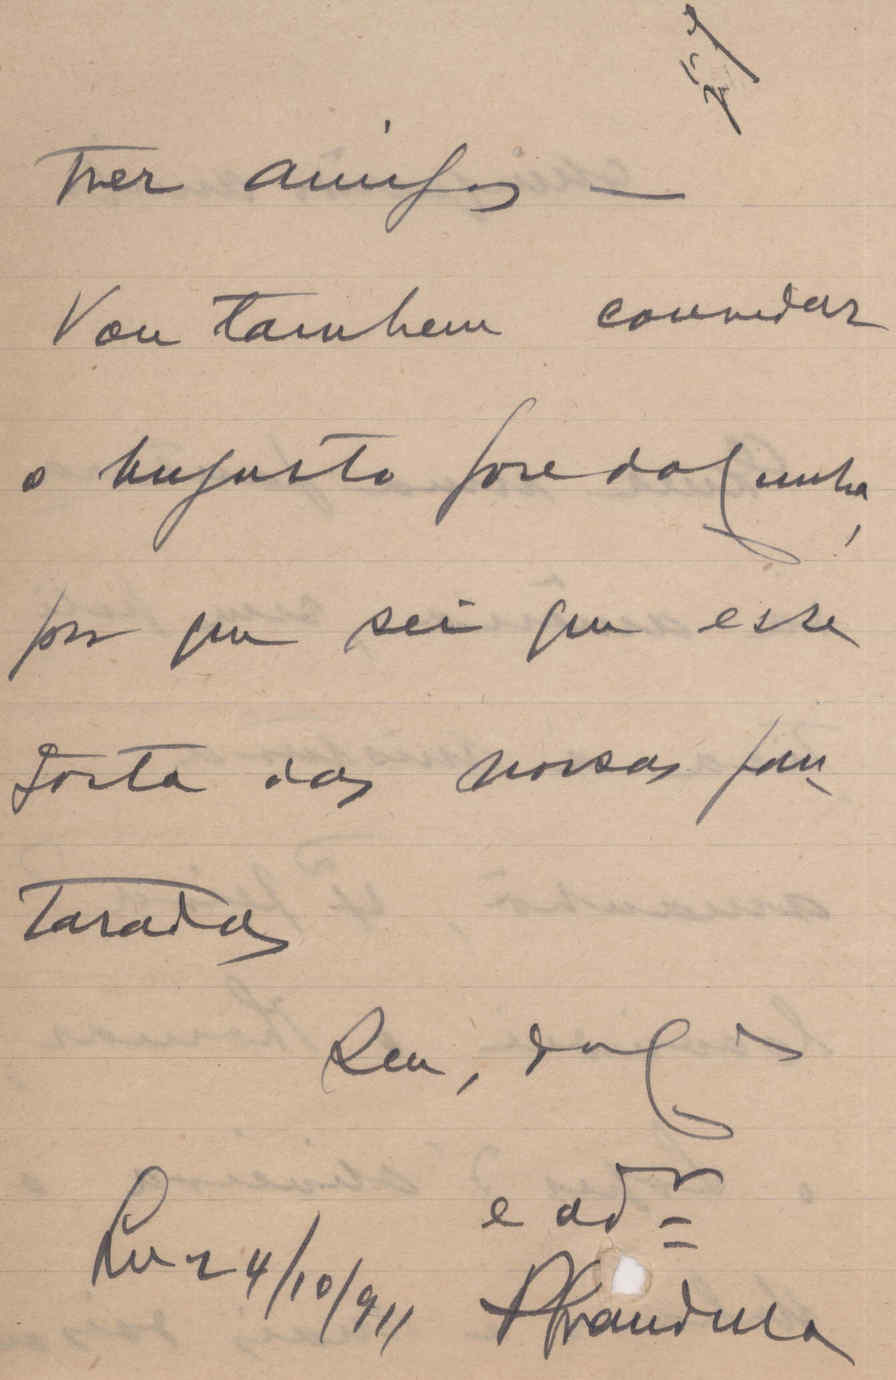 tres amigos —
Vou tambem convidar
o Augusto José da Cunha,
por que sei que esse
gosta das nossas pan
taradas
Seu, do C
e adr
Lx 24/10/911